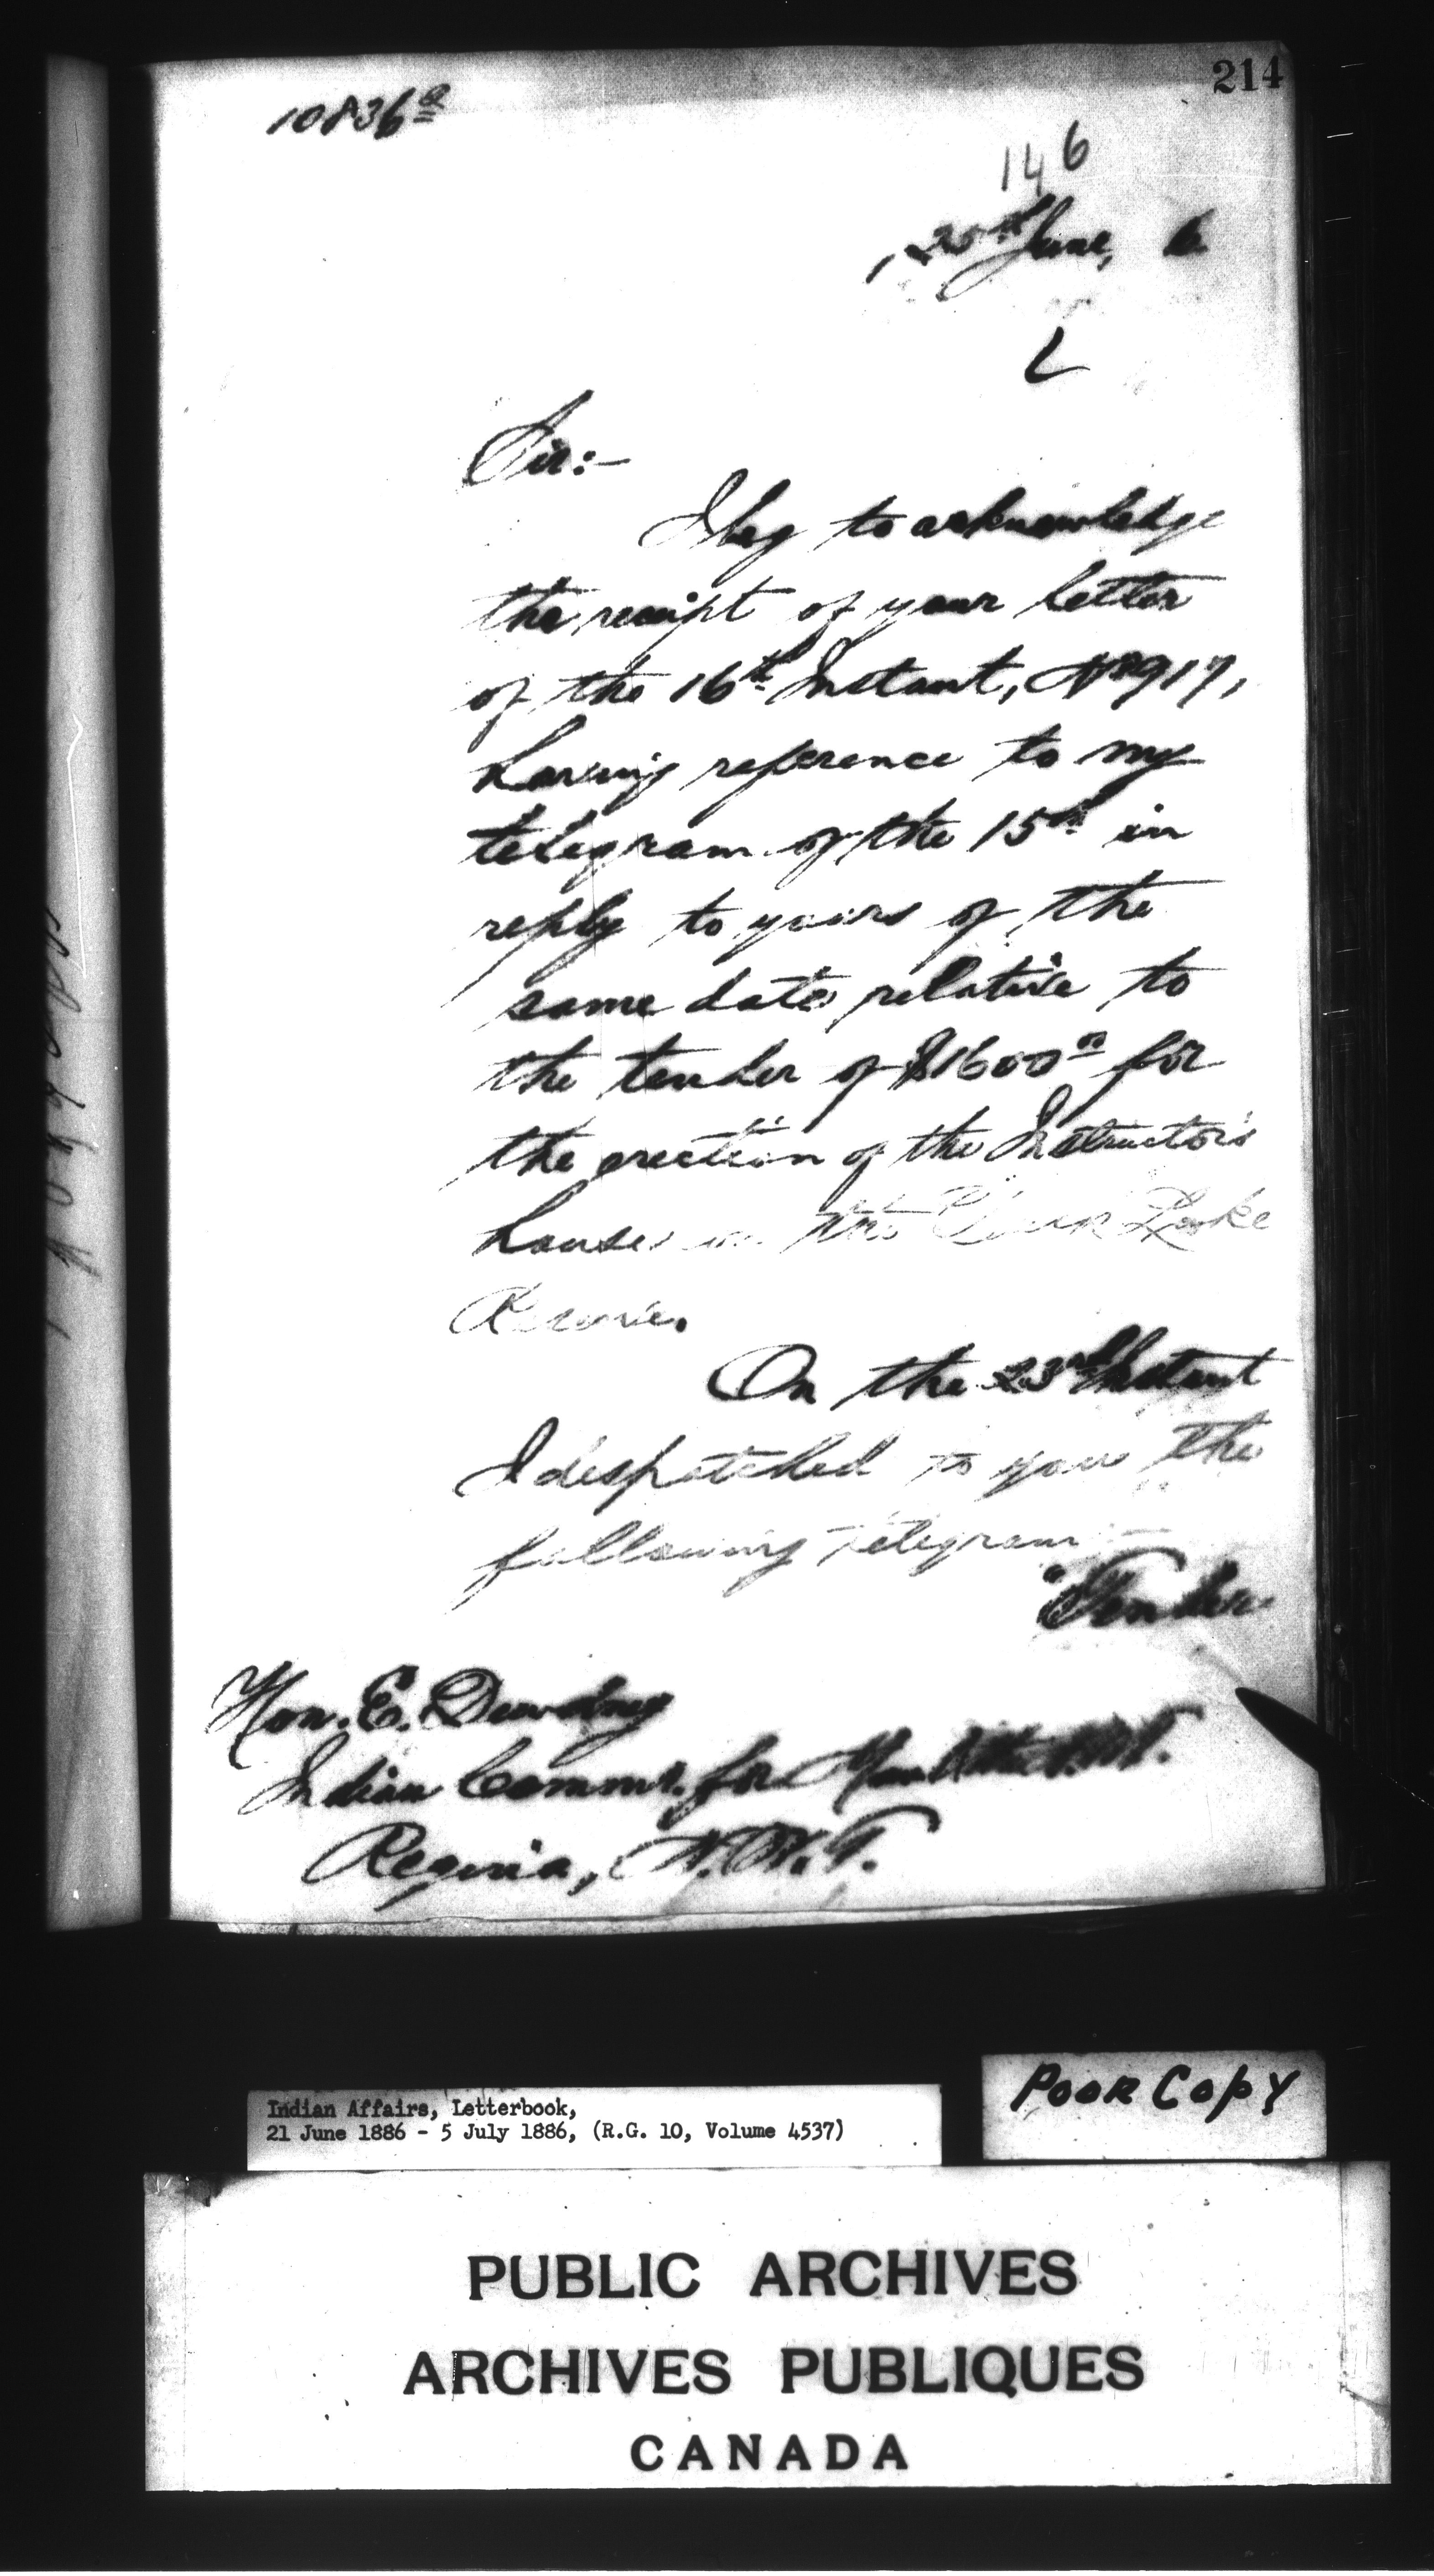 214
10836a
146
, 25th June, 6
L
Sir:-
I beg to acknowledge
the receipt of your letter
of the 16th Instant, No 917,
having reference to my
telegram of the 15th in
reply to yours of the
same date relative to
the tender of $1600 00 for
the erection of the Instructor's
house on the Duck Lake
Reserve.
On the 23rd Instant
I despatched to you the
following telegram:-
"Tender
Hon. E. Dewdney
Indian Commr. for
Regina, N.W.T.
Poor Copy
Indian Affairs, Letterbook,
21 June 1886 - 5 July 1886, (R.G. 10, Volume 4537)
PUBLIC ARCHIVES
ARCHIVES PUBLIQUES
CANADA